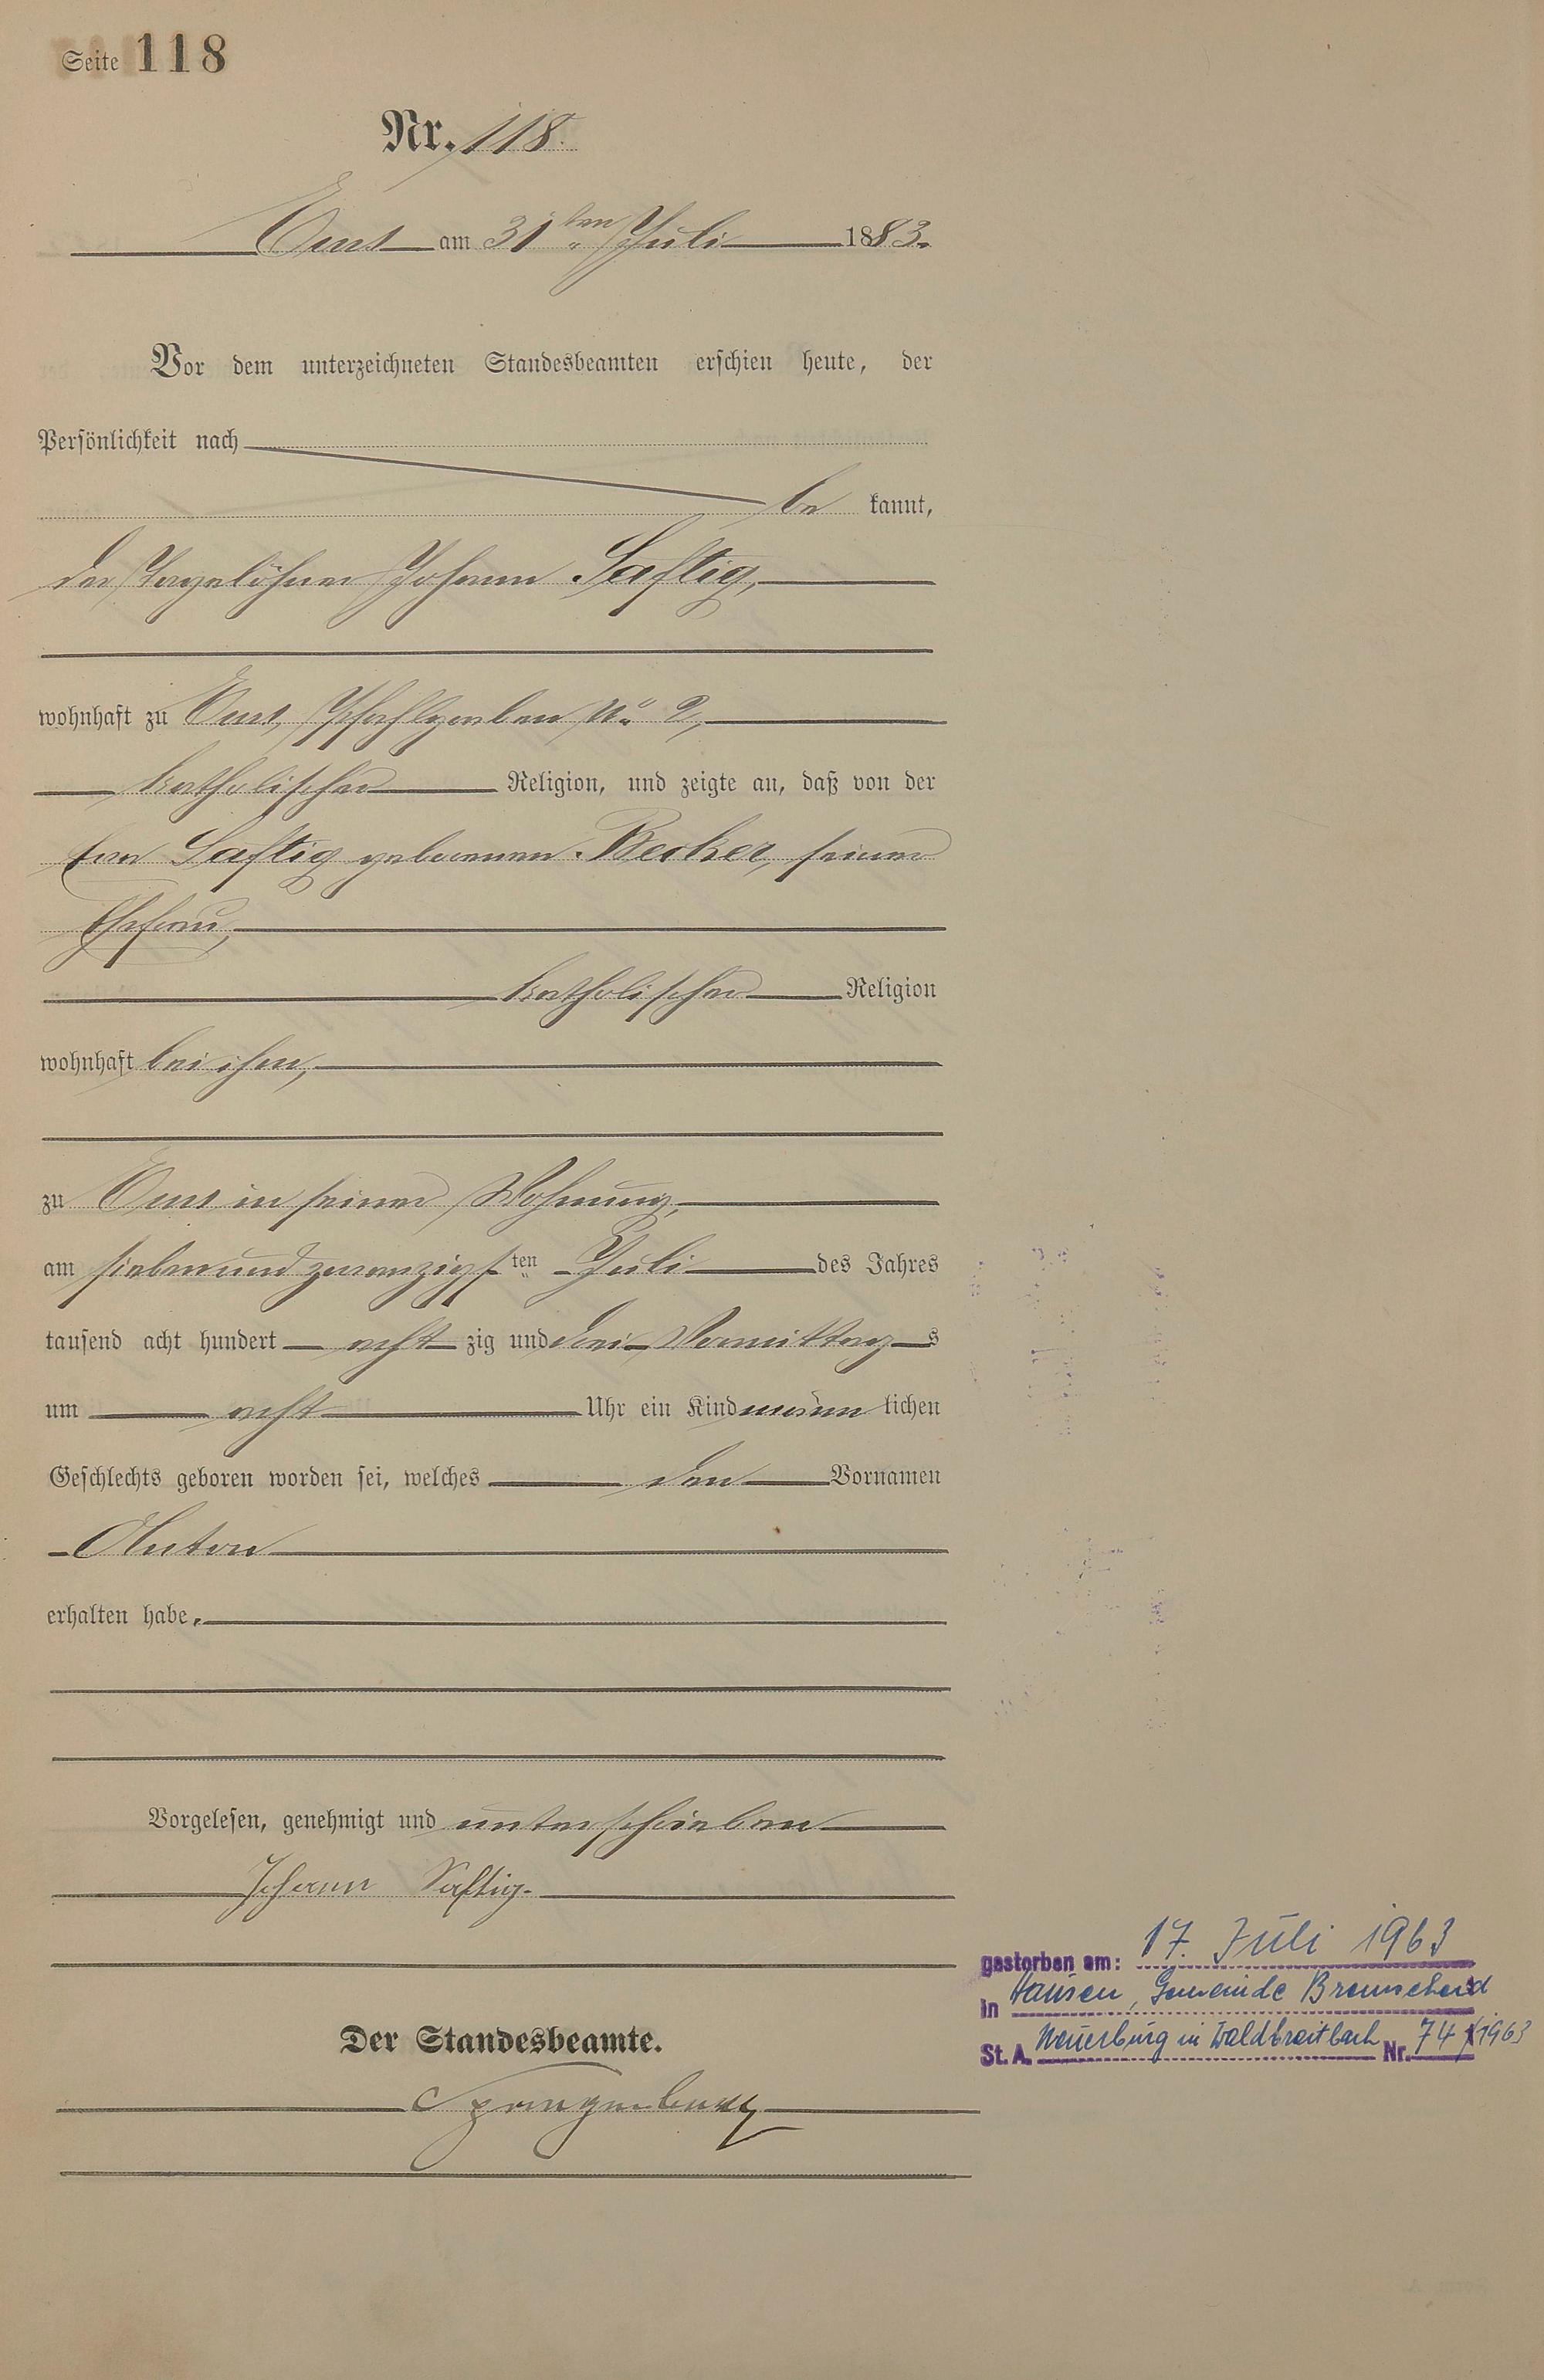 Seite 118
Nr. 118.
Ems am 31ten Juli 1883.
Vor dem unterzeichneten Standesbeamten erschien heute, der
Persönlichkeit nach
be kannt,
der Tagelöhner Johann Saftig,
wohnhaft zu Ems, Pfahlgraben No 2,
katholischer Religion, und zeigte an, daß von der
Saftig geborenen Becker, seiner
Ehefrau,
katholischer Religion
wohnhaft bei ihm,
zu Ems in seiner Wohnung,
am siebenundzwanzigsten Juli des Jahres
tausend acht hundert acht zig und drei Vormittags
um acht Uhr ein Kind männlichen
Geschlechts geboren worden sei, welches den Vornamen
Anton
erhalten habe.
Vorgelesen, genehmigt und unterschrieben
Johann Saftig.
Der Standesbeamte.
Spangenberg
gestorben am: 17. Juli 1963
in Hausen, Gemeinde Bremscheid
St. A. Neuerburg in Waldbreitbach Nr. 74/1963